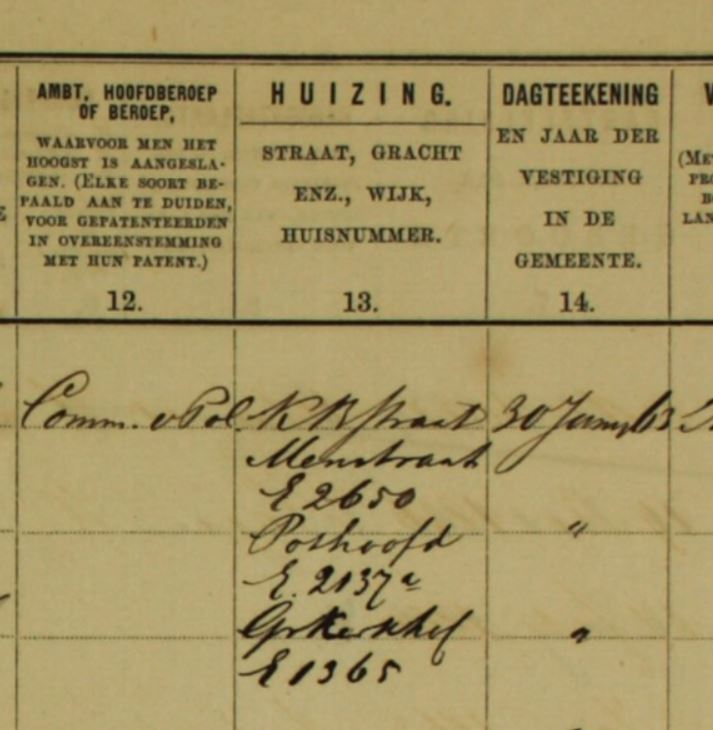 AMBT, HOOFDBEROEP
OF BEROEP,
WAARVOOR MEN HET
HOOGST IS AANGESLA-
GEN. (ELKE SOORT BE-
PAALD AAN TE DUIDEN,
VOOR GEPATENTEERDEN
IN OVEREENSTEMMING
MET HUN PATENT.)
12.
HUIZING.
STRAAT, GRACHT
ENZ., WIJK,
HUISNUMMER.
13.
DAGTEEKENING
EN JAAR DER
VESTIGING
IN DE
GEMEENTE.
14.
Comm. v Pol
K R straat
E 2650
Posthoofd
E. 2137a
Gr Kerkhof
E 1365
30 Juny 63
"
"